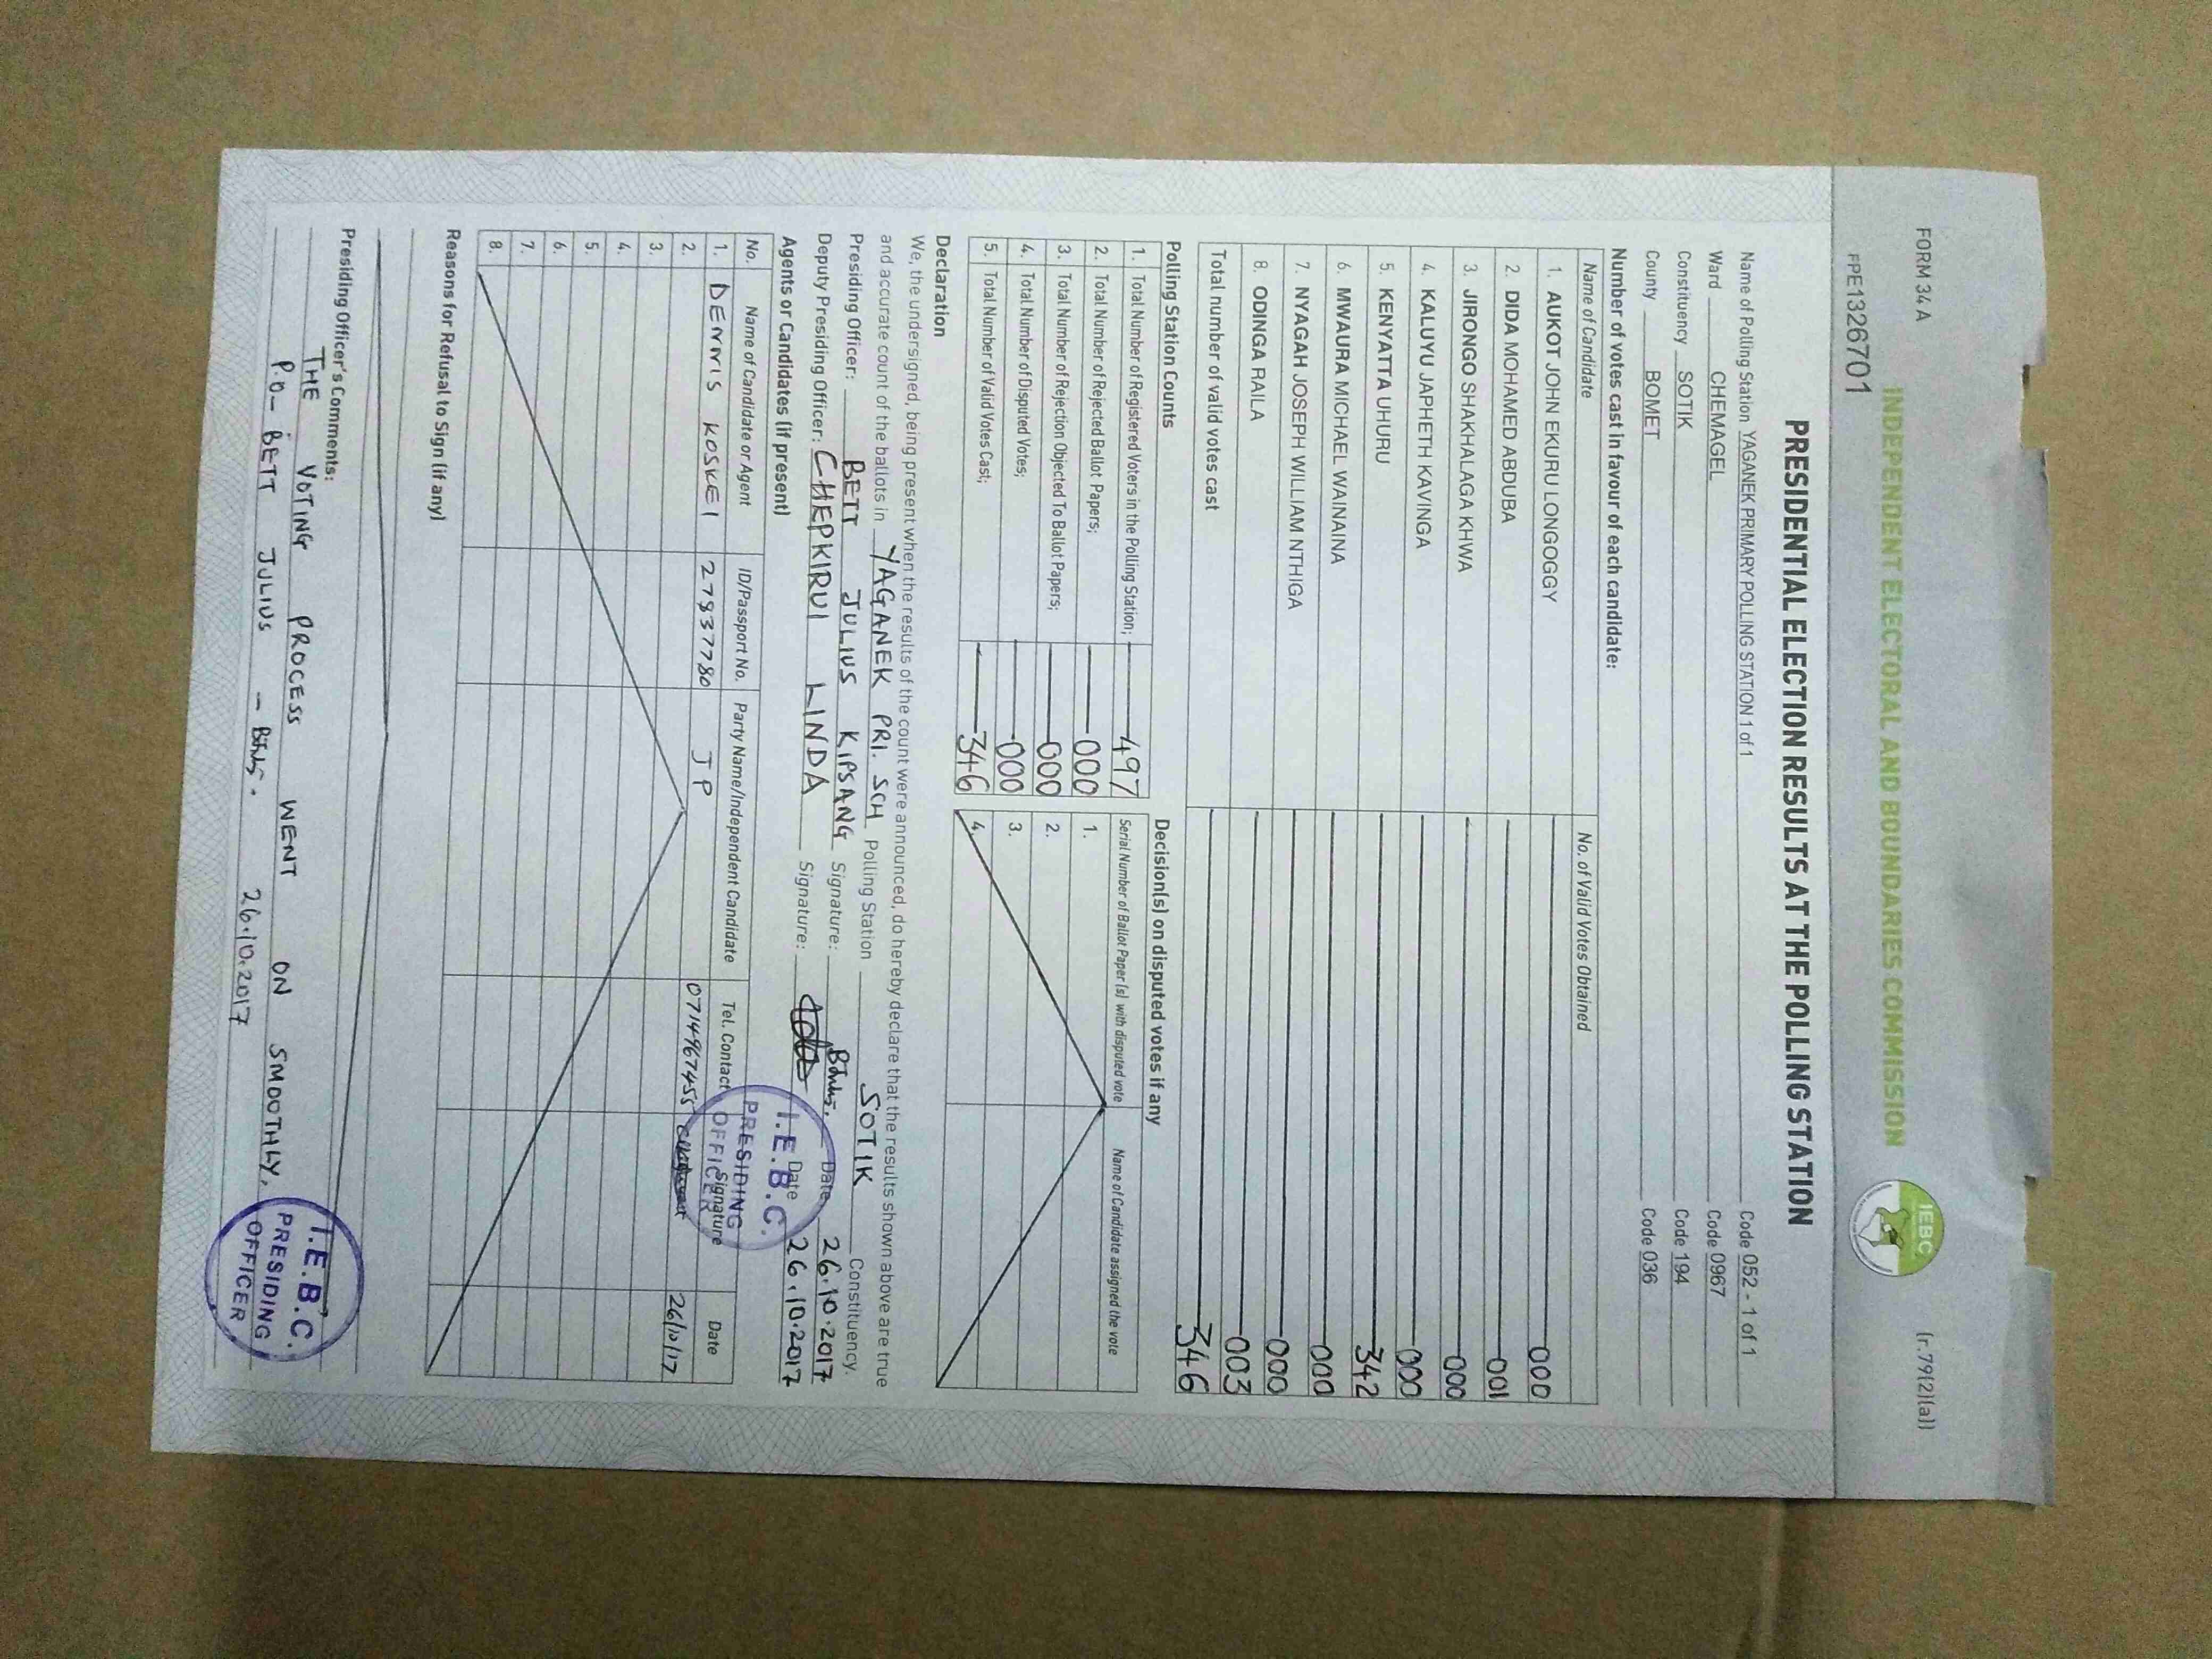 FORM 34 A
(r.79(2)(a))
INDEPENDENT ELECTORAL AND BOUNDARIES COMMISSION
IEBC
FPE1326701
PRESIDENTIAL ELECTION RESULTS AT THE POLLING STATION
Name of Polling Station YAGANEK PRIMARY POLLING STATION 1 of 1 Code 052 - 1 of 1
Ward CHEMAGEL Code 0967
Constituency SOTIK Code 194
County BOMET Code 036
Number of votes cast in favour of each candidate:
Name of Candidate No. of Valid Votes Obtained
1. AUKOT JOHN EKURU LONGOGGY 000
2. DIDA MOHAMED ABDUBA 001
3. JIRONGO SHAKHALAGA KHWA 000
4. KALUYU JAPHETH KAVINGA 000
5. KENYATTA UHURU 342
6. MWAURA MICHAEL WAINAINA 000
7. NYAGAH JOSEPH WILLIAM NTHIGA 000
8. ODINGA RAILA 003
Total number of valid votes cast 346
Polling Station Counts
1. Total Number of Registered Voters in the Polling Station; 497
2. Total Number of Rejected Ballot Papers; 000
3. Total Number of Rejection Objected To Ballot Papers; 000
4. Total Number of Disputed Votes; 000
5. Total Number of Valid Votes Cast; 346
Decision(s) on disputed votes if any
Serial Number of Ballot Paper (s) with disputed vote Name of Candidate assigned the vote
1.
2.
3.
4.
Declaration
We, the undersigned, being present when the results of the count were announced, do hereby declare that the results shown above are true
and accurate count of the ballots in YAGANEK PRI. SCH Polling Station SOTIK Constituency.
Presiding Officer: BETT JULIUS KIPSANG Signature: Date 26.10.2017
Deputy Presiding Officer: CHEPKIRUI LINDA Signature: Date 26.10.2017
Agents or Candidates (if present)
I.E.B.C.
PRESIDING
OFFICER
No. Name of Candidate or Agent ID/Passport No. Party Name/Independent Candidate Tel. Contact Signature Date
1. DENNIS KOSKEI 27837780 JP 0714967455 26/10/17
2.
3.
4.
5.
6.
7.
8.
Reasons for Refusal to Sign (if any)
Presiding Officer's Comments:
THE VOTING PROCESS WENT ON SMOOTHLY.
P.O- BETT JULIUS - 26.10.2017
I.E.B.C.
PRESIDING
OFFICER